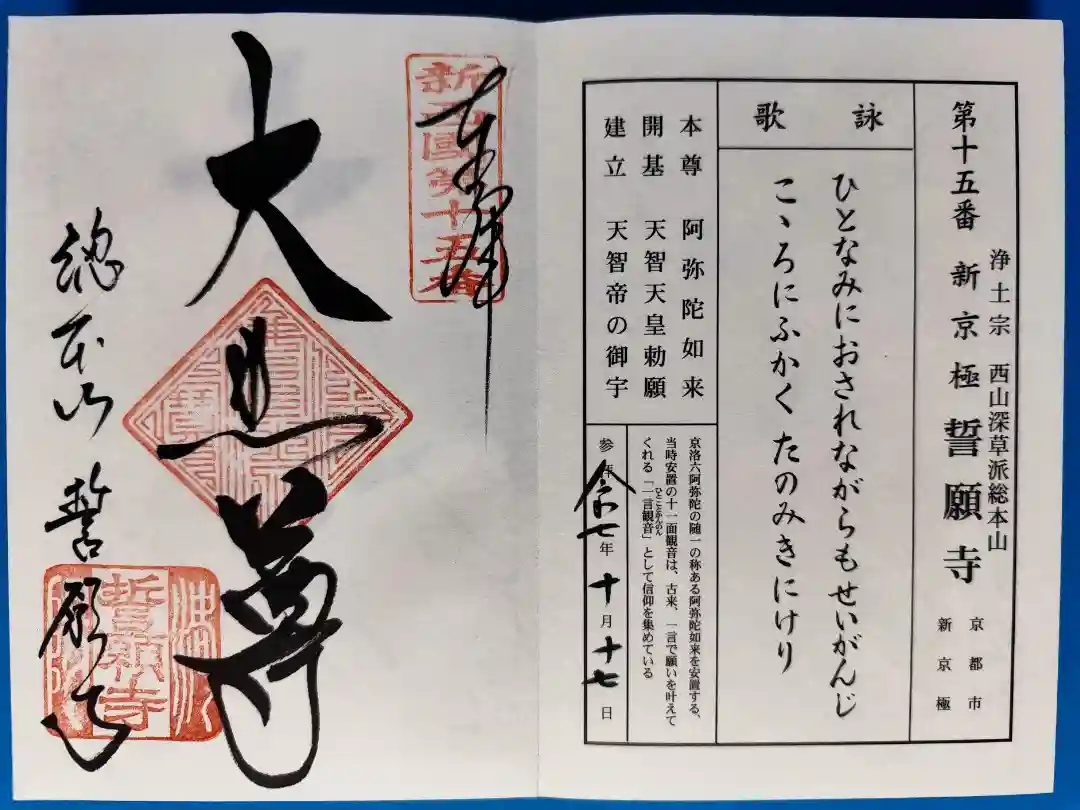 浄土宗 西山深草派総本山
第十五番 新京極 誓願寺 京都市 新京極
詠歌
ひとなみにおされながらもせいがんじ
こゝろにふかくたのみきにけり
本尊 阿弥陀如来
開基 天智天皇勅願
建立 天智帝の御宇
京洛六阿弥陀の随一の称ある阿弥陀如来を安置する、
当時安置の十一面観音は、古来、一言で願いを叶えて
くれる「一言観音」として信仰を集めている
ひとことかんのん
参拝 令和七年十月十七日
奉拝
新西國第十五番
大悲尊
總本山 誓願寺
誓願寺